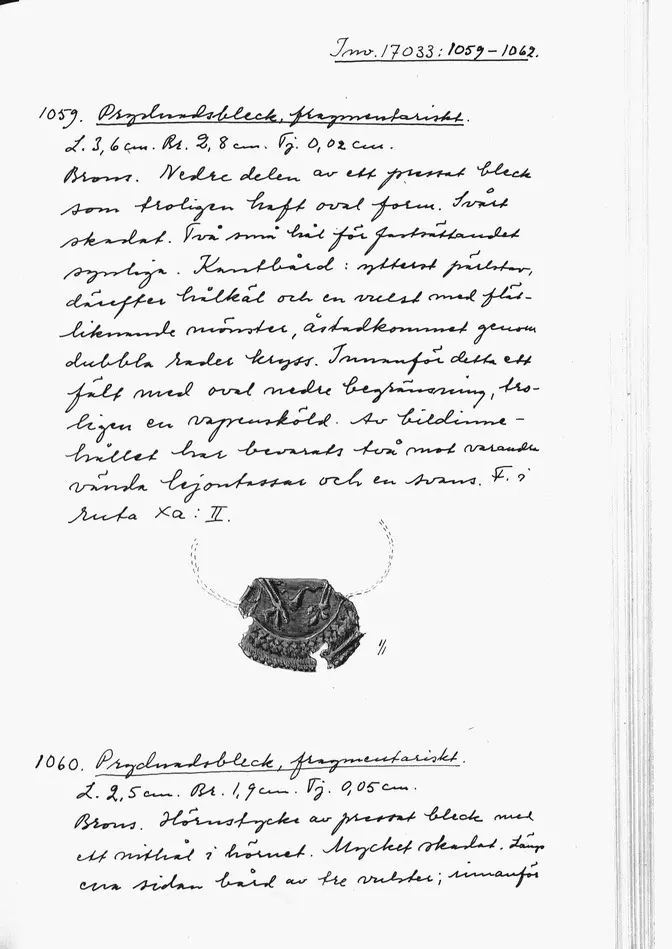 Inv. 17033: 1059–1062.
1059. Prydnadsbleck, fragmentariskt.
L. 3,6 cm. Br. 2,8 cm. Tj. 0,02 cm.
Brons. Nedre delen av ett pressat bleck
som troligen haft oval form. Svårt
skadat. Två små hål för fastsättandet
synliga. Kantbård: ytterst pärlstav,
därefter hålkäl och en vulst med flät-
liknande mönster, åstadkommet genom
dubbla rader kryss. Innanför detta ett
fält med oval nedre begränsning, tro-
ligen en vapensköld. Av bildinne-
hållet har bevarats två mot varandra
vända lejontassar och en svans. F. i
ruta Xa: II.
1/1
1060. Prydnadsbleck, fragmentariskt.
L. 2,5 cm. Br. 1,9 cm. Tj. 0,05 cm.
Brons. Hörnstycke av pressat bleck med
ett nithål i hörnet. Mycket skadat. Längs
ena sidan bård av tre vulster; innanför